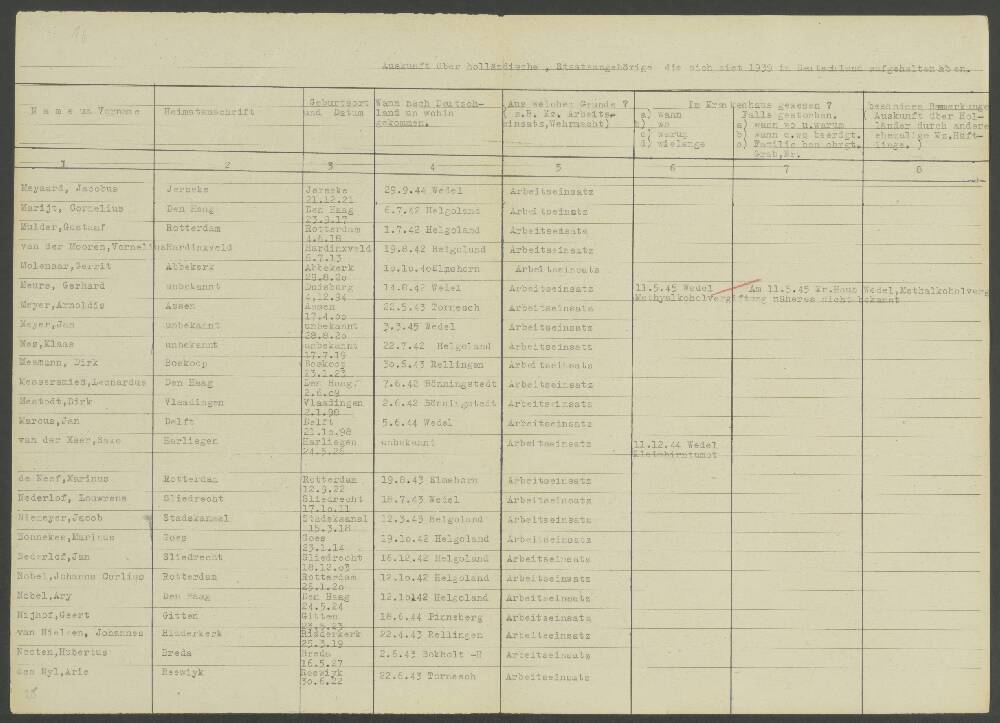 16
Auskunft über holländische, Staatsangehörige die sich siet 1939 in Deutschland aufgehalten haben.
N a m e un Vorname
Heimatanschrift
Geburtsort und Datum
Wann nach Deutschland un wohin gekommen.
Aus welchen Grunde ? ( z.B. Kz. Arbeitseinsatz,Wehrmacht)
Im Krankenhaus gewesen ?
a) wann
b) wo
c) warum
d) wielange
Falls gestorben.
a) wann wo u.warum
b) wann u.wo beerdgt.
c) Familie benchrgt.
Grab,Nr.
besondere Bemerkunge
( Auskunft über Holländer durch andere ehemalige Kz.Häftlinge. )
1 2 3 4 5 6 7 8
Mayaard, Jacobus Jerseke Jerseke 29.9.44 Wedel Arbeitseinsatz
21.12.21
Marijt, Cornelius Den Haag Den Haag 6.7.42 Helgoland Arbeitseinsatz
23.9.17
Mulder,Gustaaf Rotterdam Rotterdam 1.7.42 Helgoland Arbeitseinsatz
4.6.18
van der Mooren,Vornelius Hardinxveld Hardinxveld 19.8.42 Helgoland Arbeitseinsatz
6.7.13
Molenaar,Gerrit Abbekerk Abbekerk 10.10.40 Elmshorn Arbeitseinsatz
29.8.20
Meurs, Gerhard unbekannt Duisburg 14.8.42 Wedel Arbeitseinsatz 11.5.45 Wedel Am 11.5.45 Kr.Haus Wedel,Methalkoholverg
4.12.94 Methyalkoholvergiftung näheres nicht bekannt
Meyer,Arnoldis Assen Assen 22.5.43 Tornesch Arbeitseinsatz
17.4.00
Meyer,Jan unbekannt unbekannt 3.3.45 Wedel Arbeitseinsatz
28.8.20
Mes,Klaas unbekannt unbekannt 22.7.42 Helgoland Arbeitseinsatz
17.7.19
Mesmann, Dirk Boskoop Boskoop 30.5.43 Rellingen Arbeitseinsatz
23.1.23
Messersmied,Leonardus Den Haag Den Haag 7.6.42 Bönningstedt Arbeitseinsatz
2.6.09
Mastedt,Dirk Vlaadingen Vlaadingen 2.6.42 Bönningstedt Arbeitseinsatz
2.1.98
Marcus,Jan Delft Delft 5.6.44 Wedel Arbeitseinsatz
21.10.98
van der Xeer,Sake Harliegen Harliegen unbekannt Arbeitseinsatz 11.12.44 Wedel
24.5.26 Kleinhirntumot
de Neef,Marinus Rotterdam Rotterdam 19.8.43 Elmshorn Arbeitseinsatz
12.9.22
Nederlof, Louwrens Sliedrecht Sliedrecht 18.7.43 Wedel Arbeitseinsatz
17.10.11
Niemeyer,Jacob Stadskanaal Stadskanaal 12.3.43 Helgoland Arbeitseinsatz
15.3.18
Sonnekes,Marinus Goes Goes 19.10.42 Helgoland Arbeitseinsatz
23.1.14
Nederlof,Jan Sliedrecht Sliedrecht 16.12.42 Helgoland Arbeitseinsatz
18.12.03
Nobel,Johanne Corlius Rotterdam Rotterdam 12.10.42 Helgoland Arbeitseinsatz
25.1.20
Nobel,Ary Den Haag Den Haag 12.10142 Helgoland Arbeitseinsatz
24.5.24
Nijhof,Geert Gitten Gitten 18.6.44 Pinneberg Arbeitseinsatz
van Nielsen, Johannes Ridderkerk Ridderkerk 22.4.43 Rellingen Arbeitseinsatz
25.3.19
Nooten,Hubertus Breda Breda 2.6.43 Bokholt -H Arbeitseinsatz
16.5.27
den Nyl,Arie Reewiyk Reewiyk 22.6.43 Tornesch Arbeitseinsatz
30.6.22